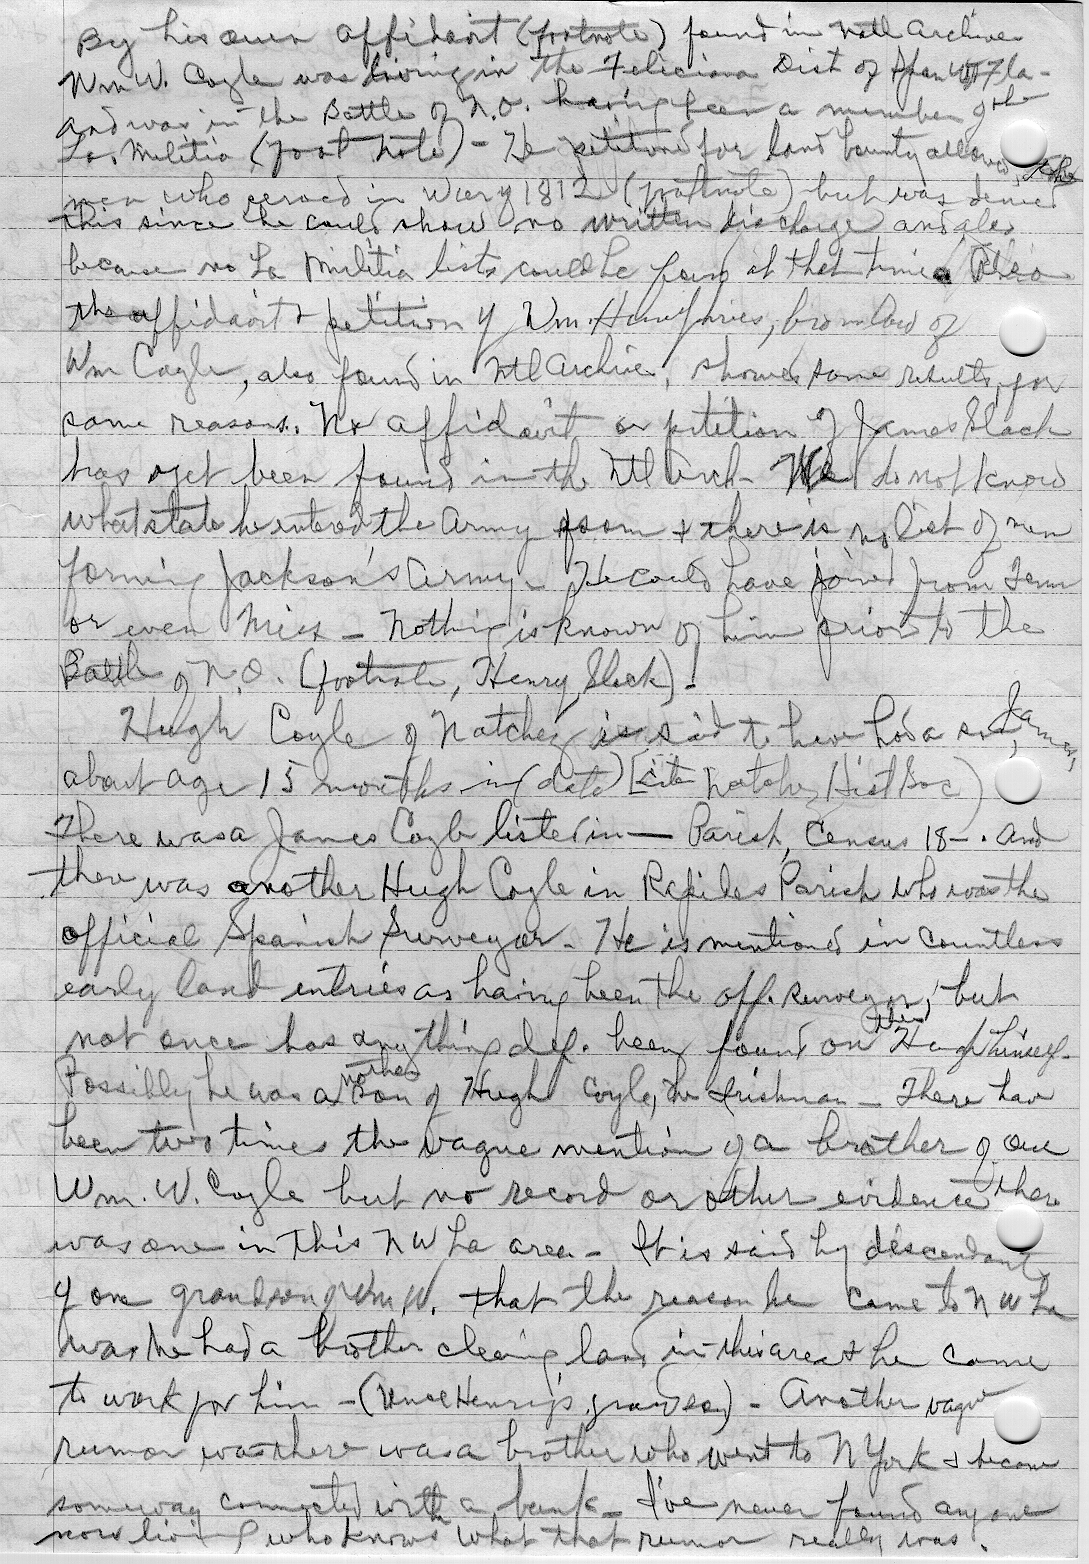 By his own affidavit (footnote) found in Natl Archives
Wm W. Coyle was living in the Feliciana Dist of Span W Fla -
and was in the Battle of N.O. having been a member of the
La. Militia (foot note) - He petitioned for land bounty allowed to the
men who served in War of 1812 (footnote) but was denied
this since he could show no written discharge and also
because no La Militia lists could be found at that time. Also
the affidavit & petition of Wm. Humphries, bro in law of
Wm Coyle, also found in Ntl Archives, showed same results, for
same reasons. No affidavit or petition of James Slack
has yet been found in the Ntl Arch - We do not know
what state he entered the Army from & there is no list of men
forming Jackson's Army - He could have joined from Tenn
or even Miss - Nothing is known of him prior to the
Battle of N.O. (footnote, Henry Slack) -
Hugh Coyle of Natchez is said to have had a son, James,
about age 15 months in (date) [cite Natchez Hist Soc)
There was a James Coyle listed in — Parish, Census 18-. And
there was another Hugh Coyle in Rapides Parish who was the
official Spanish Surveyor - He is mentioned in countless
early land entries as having been the off. surveyor, but
not once has anything def. been found on this Hugh himself -
Possibly he was another son of Hugh Coyle, the Irishman - There have
been two times the vague mention of a brother of our
Wm. W. Coyle but no record or other evidence there
was one in this N W La area - It is said by descendants
of one grandson of Wm. W. that the reason he came to N W La
was he had a brother clearing land in this area & he came
to work for him - (Uncle Henry's grandson) - Another vague
rumor was there was a brother who went to N York & became
someway connected with a bank - I've never found anyone
now living who knows what that rumor really was.